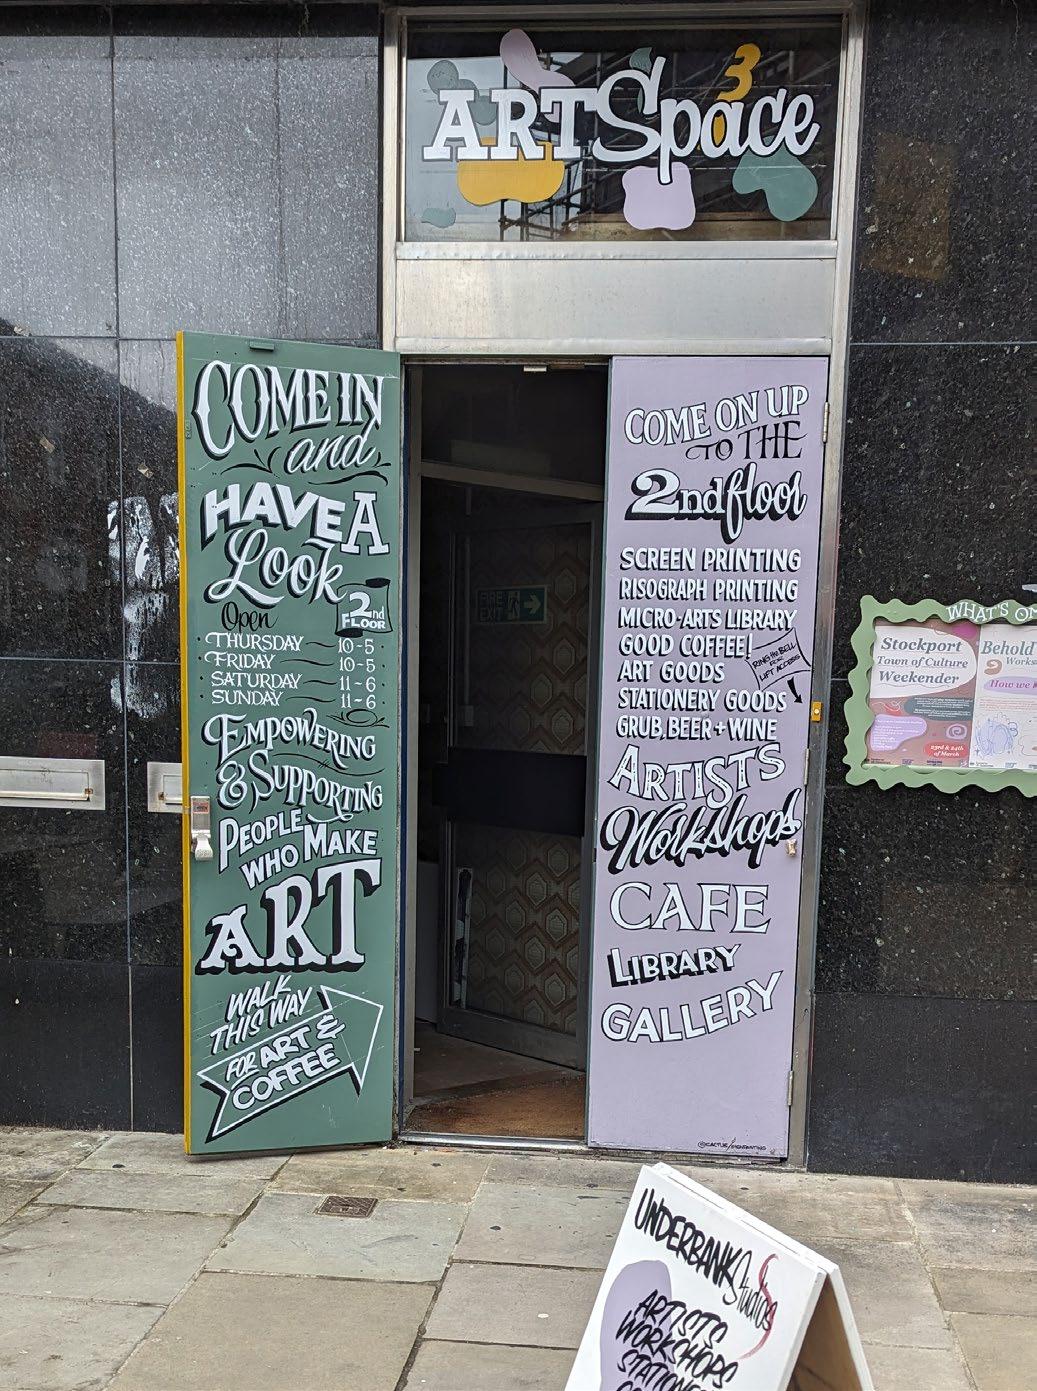 3
ARTSpace
COME IN
and
HAVE A
Look
Open
2nd
FLOOR
THURSDAY 10-5
FRIDAY 10-5
SATURDAY 11-6
SUNDAY 11-6
EMPOWERING
& SUPPORTING
PEOPLE
WHO MAKE
ART
WALK
THIS WAY
FOR ART &
COFFEE
FIRE
EXIT
COME ON UP
TO THE
2nd floor
SCREEN PRINTING
RISOGRAPH PRINTING
MICRO-ARTS LIBRARY
GOOD COFFEE!
ART GOODS
RING THE BELL
FOR
LIFT ACCESS
STATIONERY GOODS
GRUB, BEER + WINE
ARTISTS
Workshops
CAFE
LIBRARY
GALLERY
WHAT'S ON
Stockport
Town of Culture
Weekender
23rd & 24th
of March
Behold
Works
How we
UNDERBANK Studios
ARTISTS
WORKSHOPS